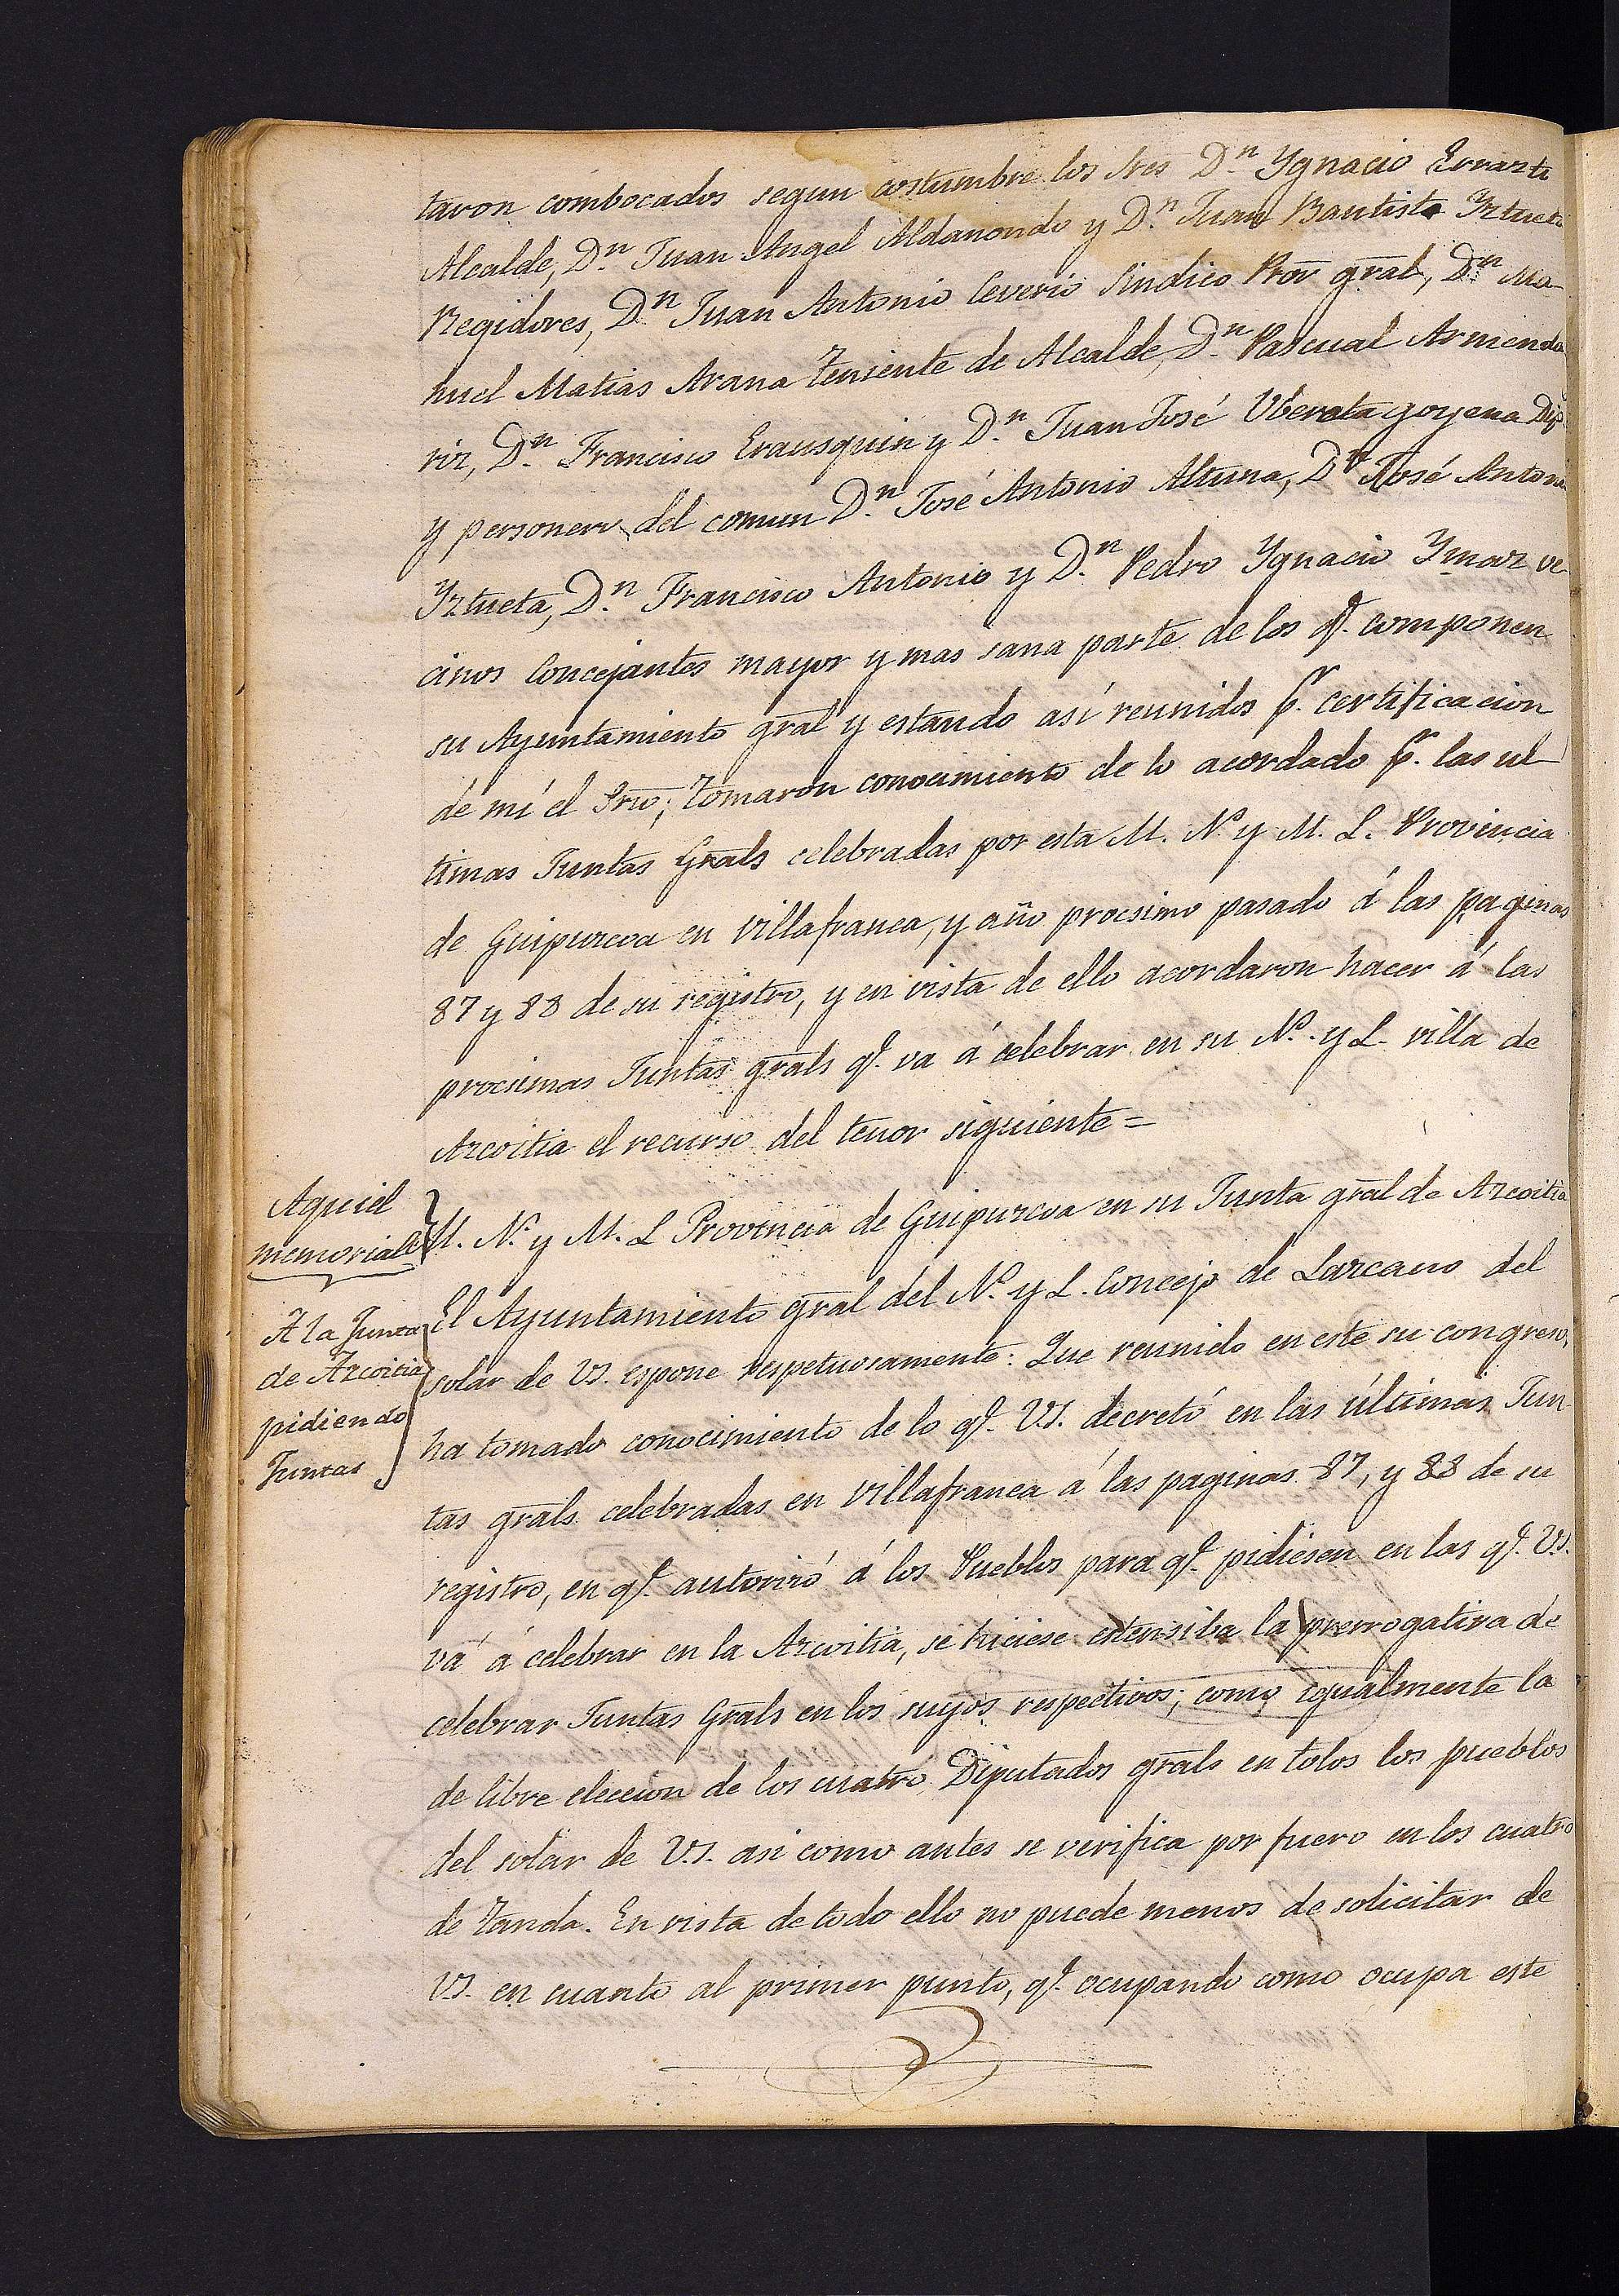 taron combocados segun costumbre los Sres Dn. Ygnacio Errazti
Alcalde, Dn. Juan Angel Aldanondo y Dn. Juan Bautista Yztueta
Regidores, Dn. Juan Antonio Ceverio Sindico Pror gral, Dn. Ma-
nuel Matias Arana Teniente de Alcalde, Dn. Pascual Armenda
riz, Dn. Francisco Erausquin y Dn. Juan José Uberetagoyena Dip.
y personero del comun Dn. José Antonio Altuna, Dn. José Antonio
Yztueta, Dn. Francisco Antonio y Dn. Pedro Ygnacio Ymaz ve-
cinos Concejantes mayor y mas sana parte de los q. componen
su Ayuntamiento gral y estando así reunidos pr. certificacion
de mí el Srio; tomaron conocimiento de lo acordado pr. las ul
timas Juntas Grals celebradas por esta M. N. y M. L. Provincia
de Guipuzcoa en Villafranca, y año procsimo pasado á las paginas
87 y 88 de su registro, y en vista de ello acordaron hacer á las
procsimas Juntas grals q. va á celebrar en su N. y L. villa de
Azcoitia el recurso del tenor siguiente =
Aqui el
memorial
M. N. y M. L Provincia de Guipuzcoa en su Junta gral de Azcoitia
A la Junta
de Azcoitia
pidiendo
Juntas
El Ayuntamiento gral del N. y L. Concejo de Lazcano del
solar de VS. espone respetuosamente: Que reunido en este su congreso,
ha tomado conocimiento de lo q. VS. decretó en las últimas Jun-
tas grals celebradas en Villafranca á las paginas 87, y 88 de su
registro, en q. autorizó á los Pueblos para q. pidiesen en las q. VS.
vá á celebrar en la Azcoitia, se hiciese estensiba la prerrogativa de
celebrar Juntas Grals en los suyos respectivos; como igualmente la
de libre eleccion de los cuatro Diputados grals en tolos los pueblos
del solar de V.S. asi como antes se verifica por fuero en los cuatro
de tanda. En vista de todo ello no puede menos de solicitar de
VS. en cuanto al primer punto, q. ocupando como ocupa este